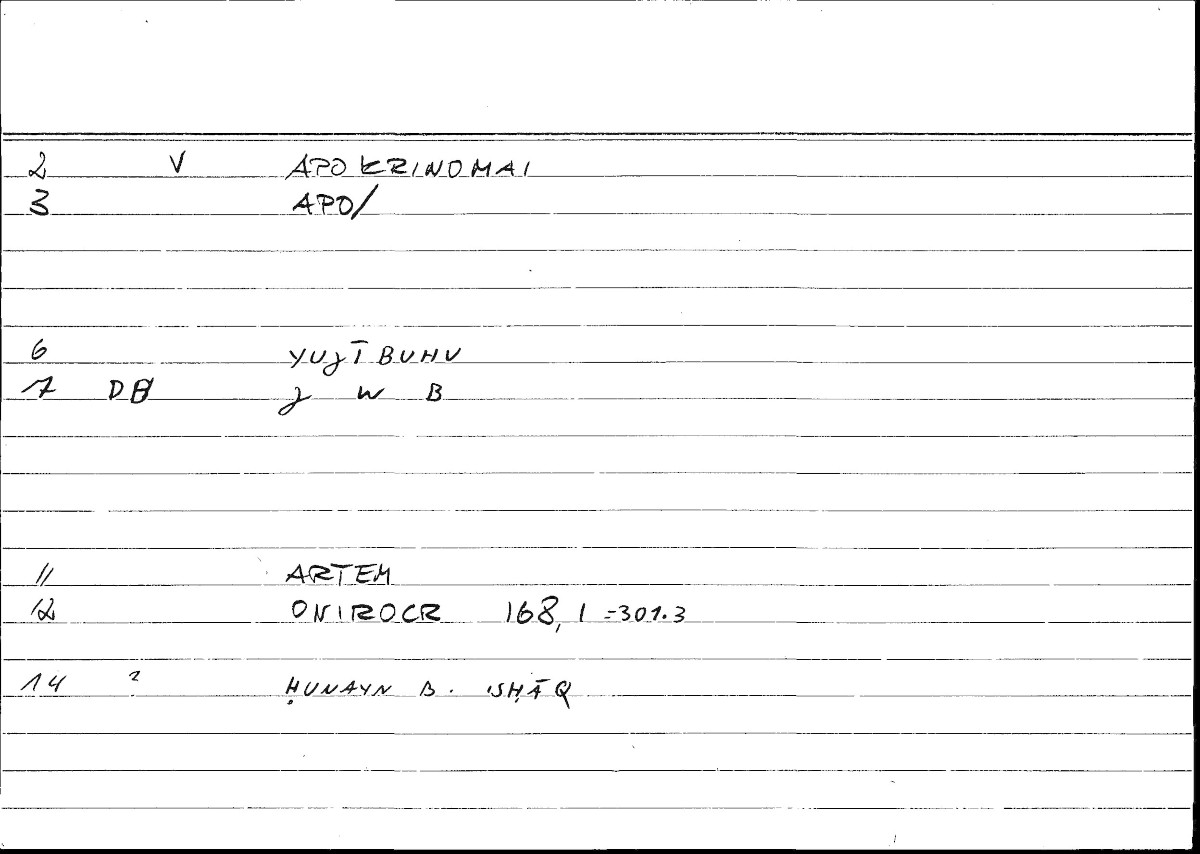 2 V APOKRINOMAI
3 APO/
6 YUǧĪBUHU
7 ǧ W B
11 ARTEM
12 ONIROCR 168,1 =301.3
14 2 ḤUNAYN B. ISḤĀQ